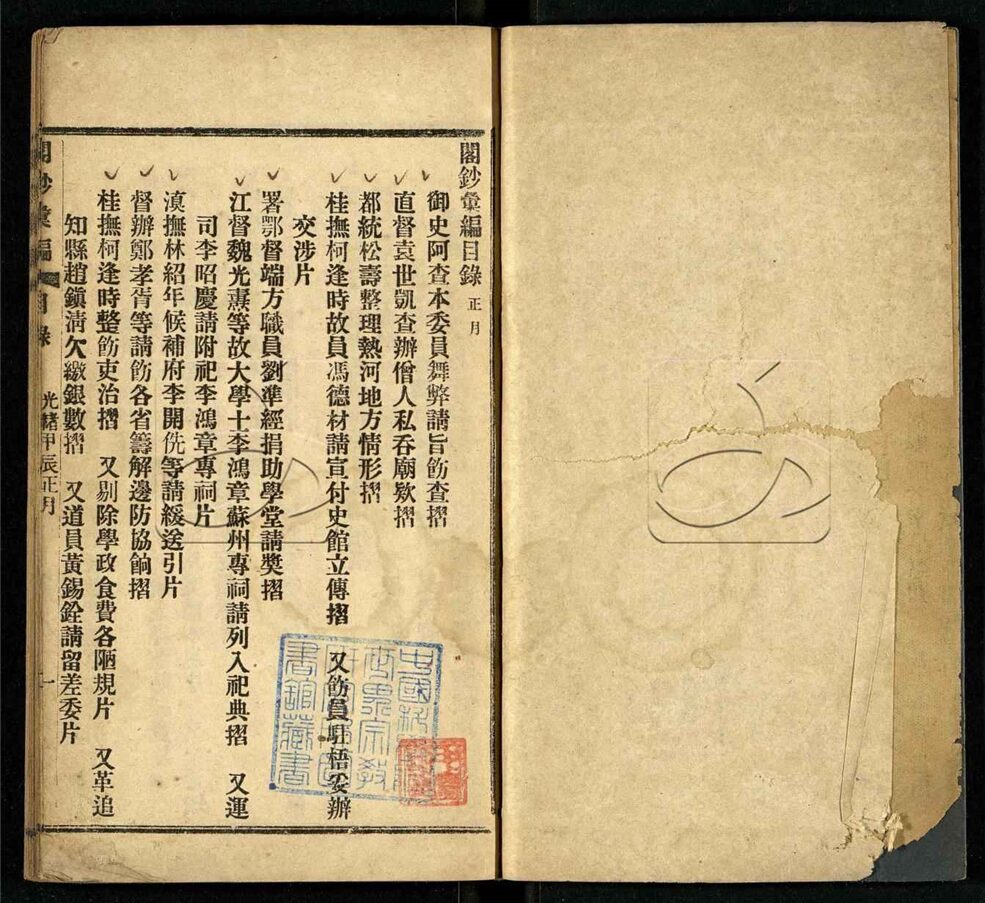 閣鈔彙編目錄 正月
御史阿查本委員舞弊請旨飭查摺
直督袁世凱查辦僧人私吞廟欵摺
都統松壽整理熱河地方情形摺
桂撫柯逢時故員馮德材請宣付史館立傳摺 又飭員駐梧妥辦
交涉片
署鄂督端方職員劉準經捐助學堂請獎摺
江督魏光燾等故大學士李鴻章蘇州專祠請列入祀典摺 又運
司李昭慶請附祀李鴻章專祠片
滇撫林紹年候補府李開侁等請緩送引片
督辦鄭孝胥等請飭各省籌解邊防協餉摺
桂撫柯逢時整飭吏治摺 又剔除學政食費各陋規片 又革追
知縣趙鎮清欠繳銀數摺 又道員黃錫銓請留差委片
閣鈔彙編 目錄 光緒甲辰正月 一
書館藏書